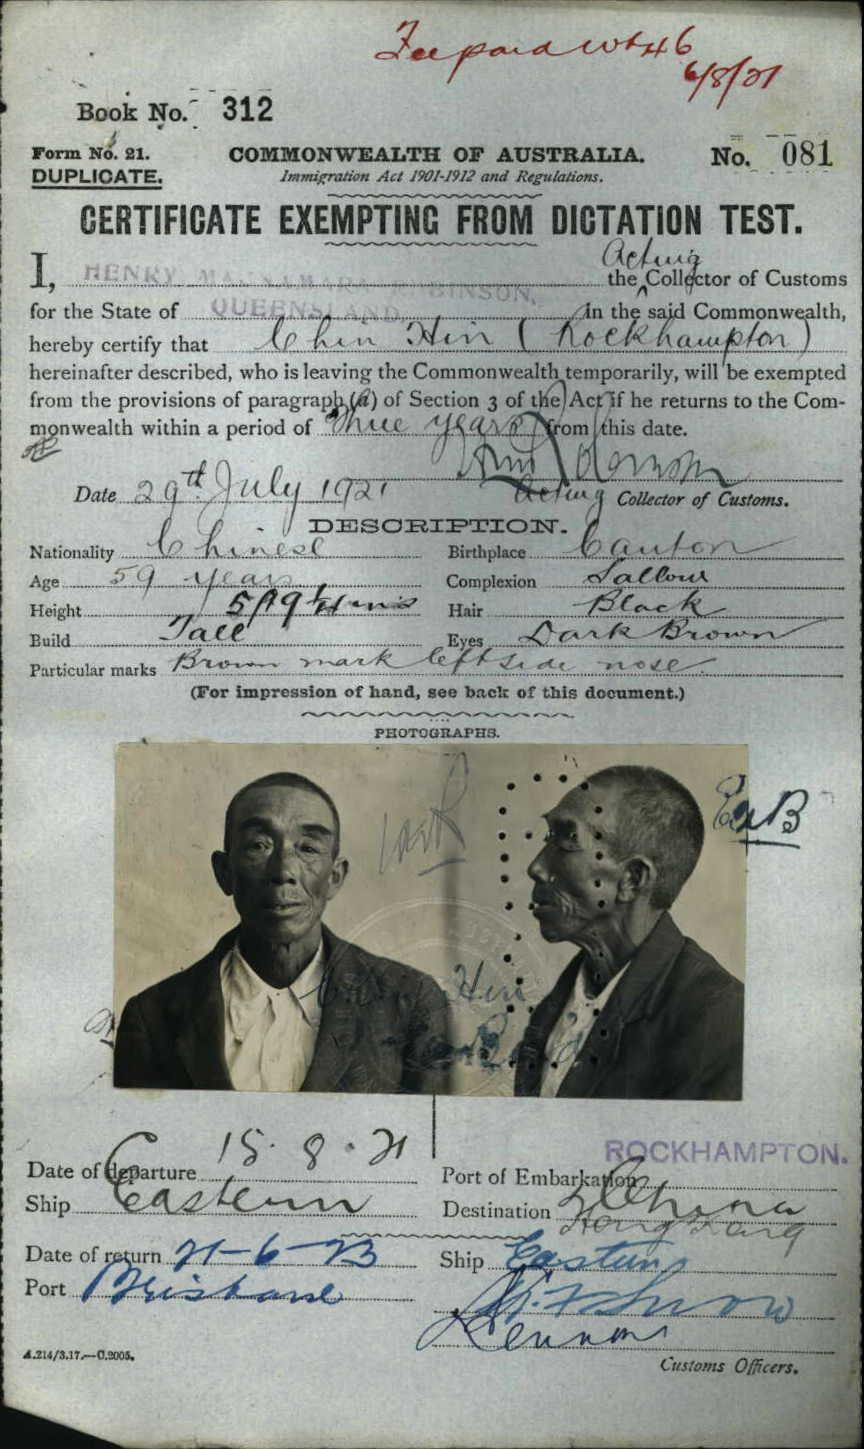 Fee paid 6/8/21
Book No. 312
Form No. 21. COMMONWEALTH OF AUSTRALIA. No. 081
DUPLICATE. Immigration Act 1901-1912 and Regulations.
CERTIFICATE EXEMPTING FROM DICTATION TEST.
Acting
I, HENRY ROBINSON, the Collector of Customs
for the State of QUEENSLAND, in the said Commonwealth,
hereby certify that Chin Hin (Rockhampton)
hereinafter described, who is leaving the Commonwealth temporarily, will be exempted
from the provisions of paragraph (a) of Section 3 of the Act if he returns to the Com-
monwealth within a period of Three years from this date.
Date 29th July 1921 Acting Collector of Customs.
DESCRIPTION.
Nationality Chinese Birthplace Canton
Age 59 years Complexion Sallow
Height 5ft 9 ins Hair Black
Build Tall Eyes Dark Brown
Particular marks Brown mark left side nose.
(For impression of hand, see back of this document.)
PHOTOGRAPHS.
Hin
ROCKHAMPTON.
Date of departure 15.8.21 Port of Embarkation
Ship Eastern Destination China
Hong Kong
Date of return 21-6-23 Ship Eastern
Port Brisbane
A.214/3.17.—C.2005.
Customs Officers.